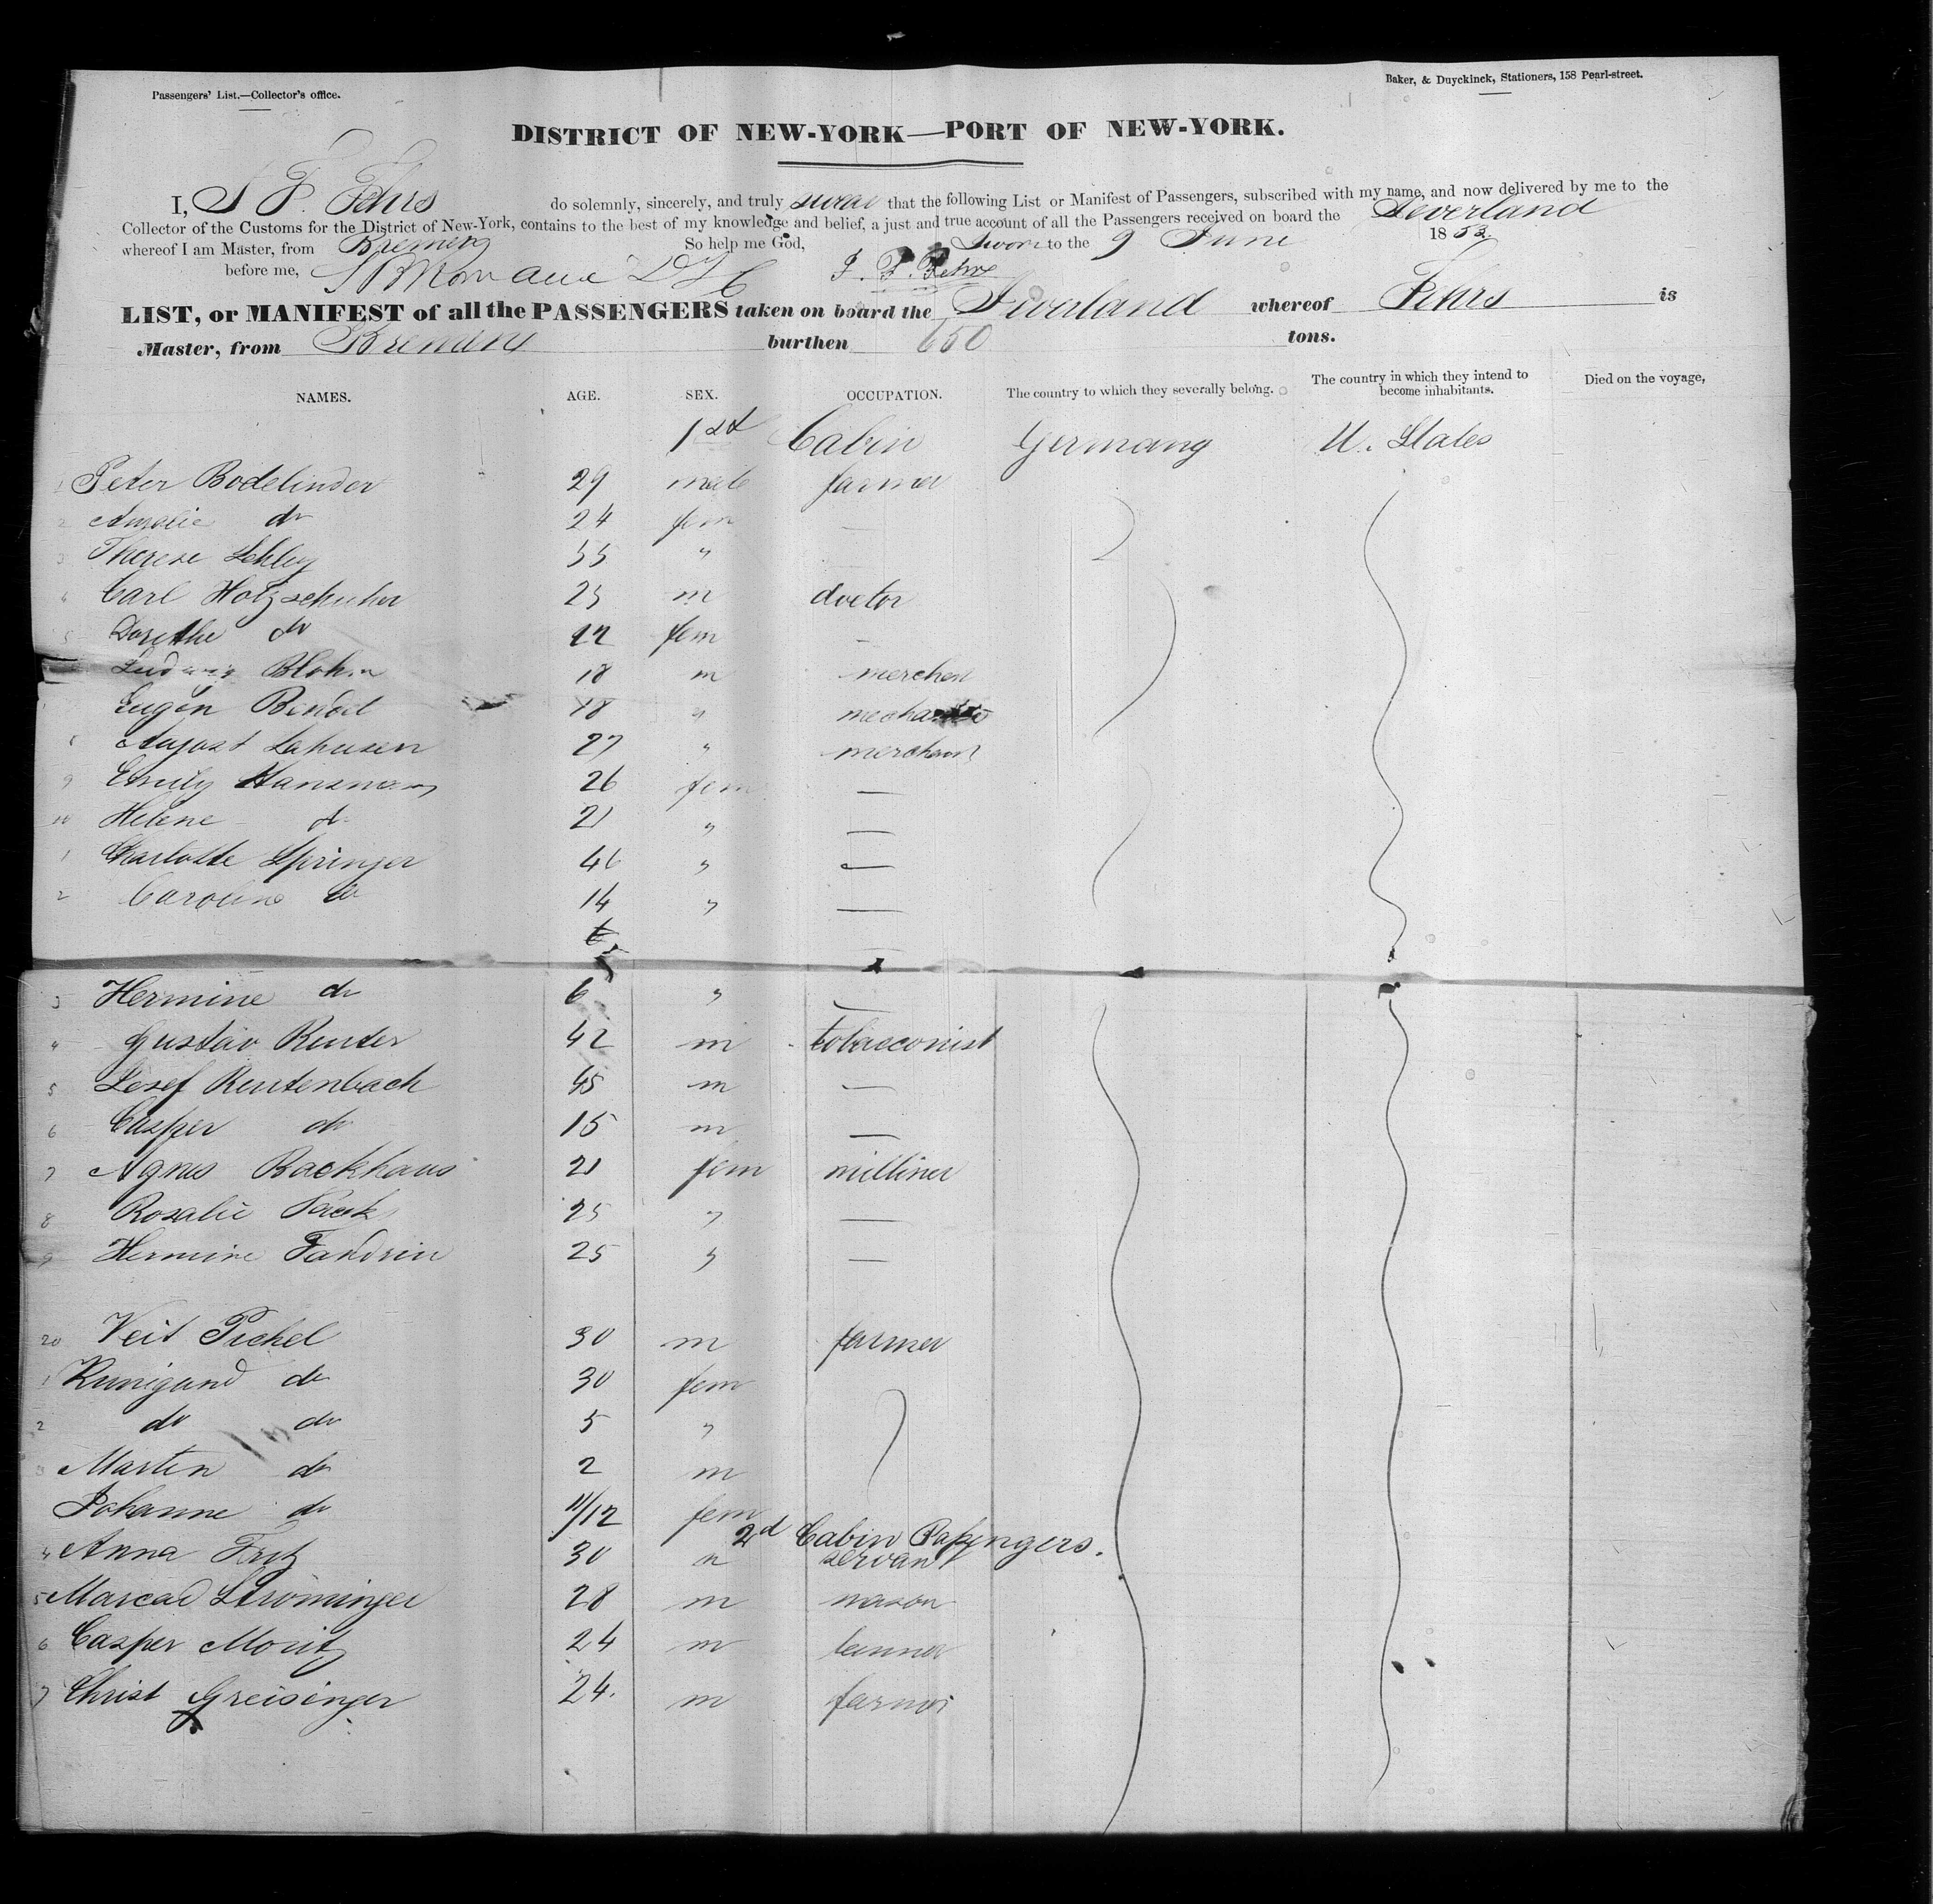 Passengers' List.—Collector's office.
Baker, & Duyckinck, Stationers, 158 Pearl-street.
DISTRICT OF NEW-YORK—PORT OF NEW-YORK.
I, F. Fehrs do solemnly, sincerely, and truly swear that the following List or Manifest of Passengers, subscribed with my name, and now delivered by me to the
Collector of the Customs for the District of New-York, contains to the best of my knowledge and belief, a just and true account of all the Passengers received on board the Jeverland
whereof I am Master, from Bremen So help me God, Sworn to the 9 June 1853.
before me, F. Fehrs
LIST, or MANIFEST of all the PASSENGERS taken on board the Jeverland whereof Fehrs is
Master, from Bremen burthen 650 tons.
NAMES. AGE. SEX. OCCUPATION. The country to which they severally belong. The country in which they intend to become inhabitants. Died on the voyage,
1st Cabin Germany U. States
1 Peter Bodelinder 29 male farmer
2 Amalie do 24 fem —
3 Therese Schley 55 "
4 Carl Holzschuher 25 m doctor
5 Dorothe do 22 fem —
Ludwig Blohm 18 m merchen
Eugen Bendel 18 "
8 August Lahusen 27 " merchant
9 Emily Hansmann 26 fem —
10 Helene do 21 " —
1 Charlotte Springer 46 " —
2 Caroline do 14 " —
3 Hermine do 6 " —
4 Gustav Reuter 42 m tobacconist
5 Josef Reutenbach 45 m —
6 Casper do 15 m —
7 Agnes Backhaus 21 fem milliner
8 Rosalie 25 " —
9 Hermine Fandrin 25 " —
20 Veit Pichel 30 m farmer
1 Kunigund do 30 fem
2 do do 5 "
3 Martin do 2 m
Johanne do 11/12 fem
2d Cabin Passengers.
4 Anna Fritz 30 " servant
5 Marcad Ströminger 28 m mason
6 Casper Moritz 24 m tanner
7 Christ Greisinger 24. m farmer